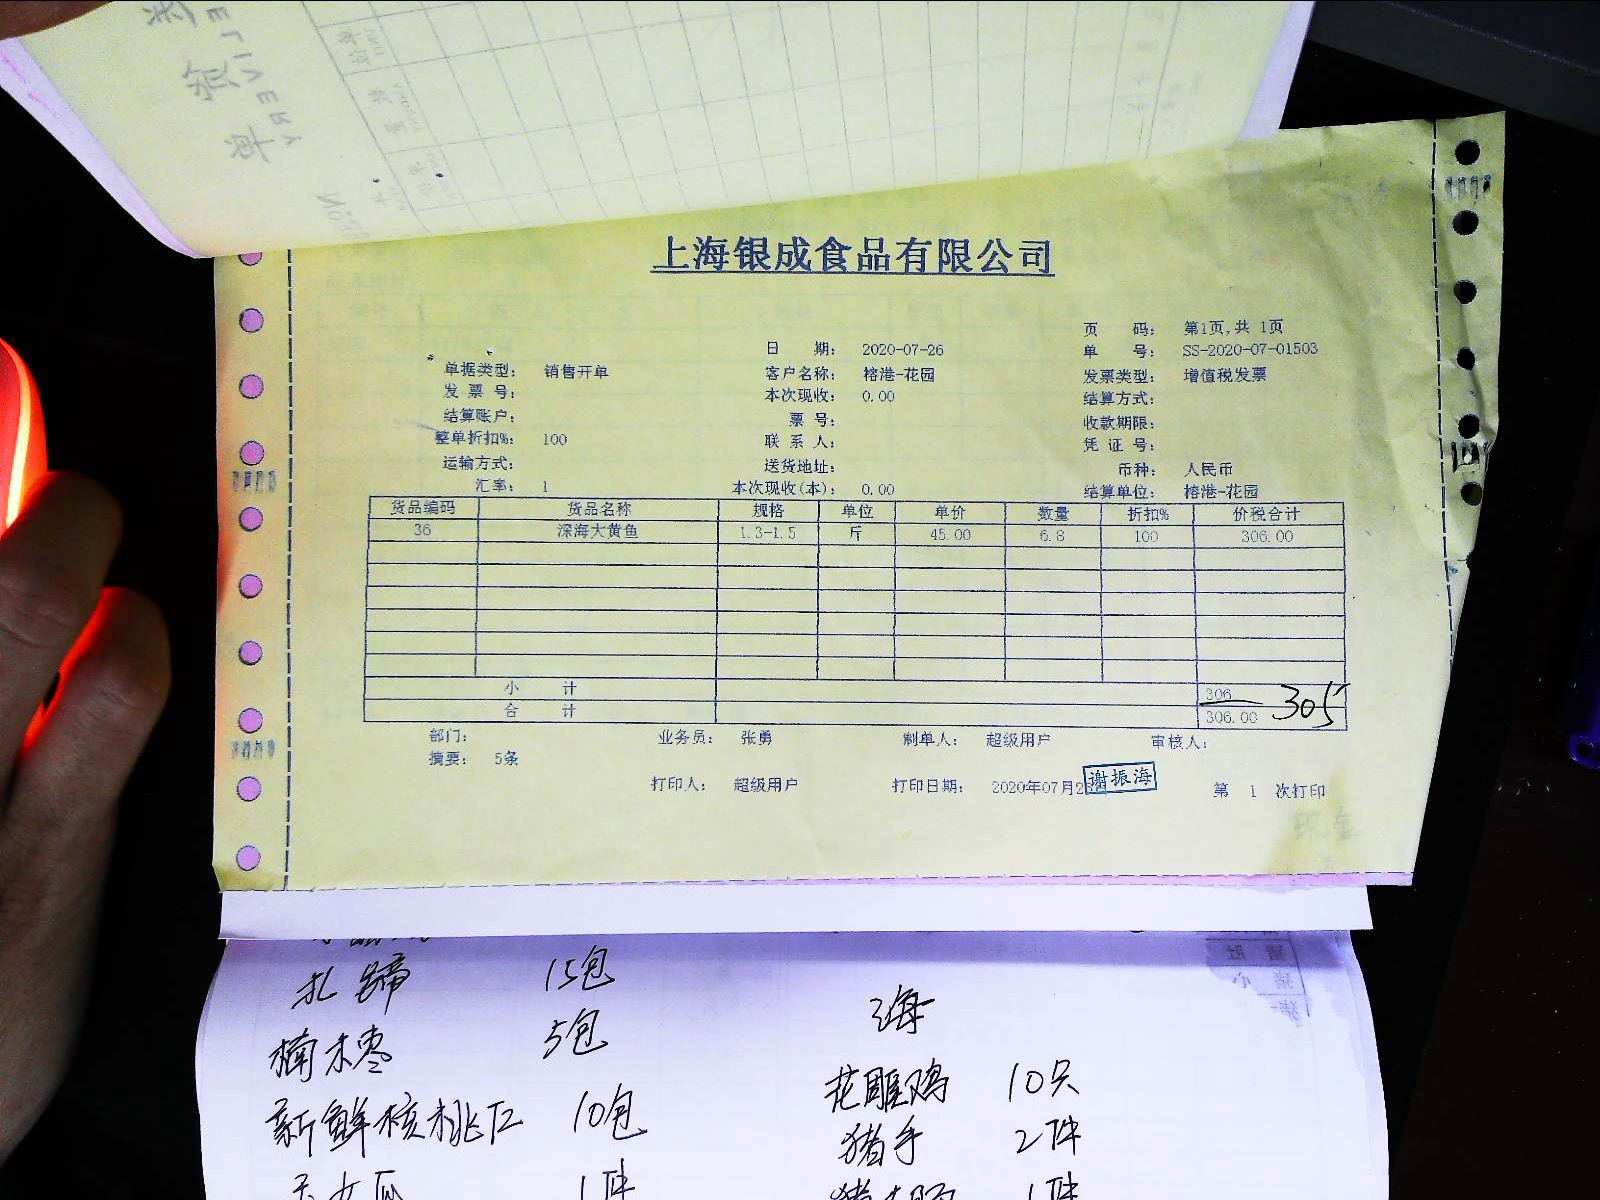 DELIVERY
上海银成食品有限公司
页 码: 第1页,共 1页
日 期: 2020-07-26 单 号: SS-2020-07-01503
单据类型: 销售开单 客户名称: 榕港-花园 发票类型: 增值税发票
发 票 号: 本次现收: 0.00 结算方式:
结算账户: 票 号: 收款期限:
整单折扣%: 100 联 系 人: 凭 证 号:
运输方式: 送货地址: 币种: 人民币
汇率: 1 本次现收(本): 0.00 结算单位: 榕港-花园
货品编码 货品名称 规格 单位 单价 数量 折扣% 价税合计
36 深海大黄鱼 1.3-1.5 斤 45.00 6.8 100 306.00
小 计 306
合 计 306.00 305
部门: 业务员: 张勇 制单人: 超级用户 审核人:
摘要: 5条
打印人: 超级用户 打印日期: 2020年07月2 谢振海 第 1 次打印
现金
扎蹄 15包
海
楠木枣 5包
花雕鸡 10只
新鲜核桃仁 10包
猪手 2件
1件
1件